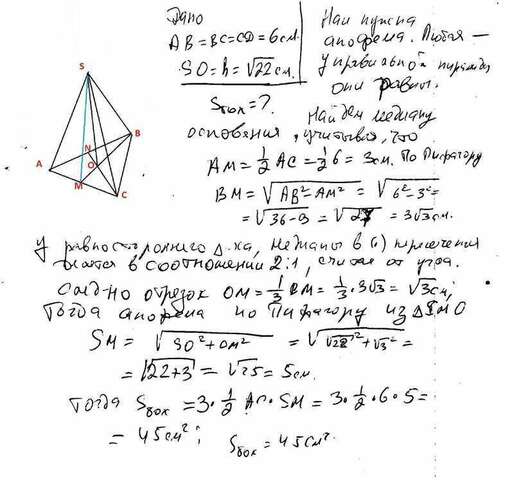 Дано
AB=BC=CD=6см.
SO=h=√22 см.
Sбок=?
Нам нужна
апофема. Любая —
у правильной пирамиды
они равны.
Найдем медиану
основания, учитывая, что
AM=1/2 AC=1/2 6=3см. По Пифагору
BM=√AB²-AM² = √6²-3²=
=√36-9=√27=3√3см.
У равностороннего Δ-ка, медианы в (·) пересечения
делятся в соотношении 2:1, считая от угла.
отрезок OM=1/3 BM=1/3·3√3=√3см;
Тогда апофема по Пифагору из ΔSMO
SM=√SO²+OM² = √√22²+√3²=
=√22+3=√25=5см.
Тогда Sбок=3·1/2 AC·SM=3·1/2·6·5=
=45см²; Sбок=45см².
S
A
B
N
O
M
C